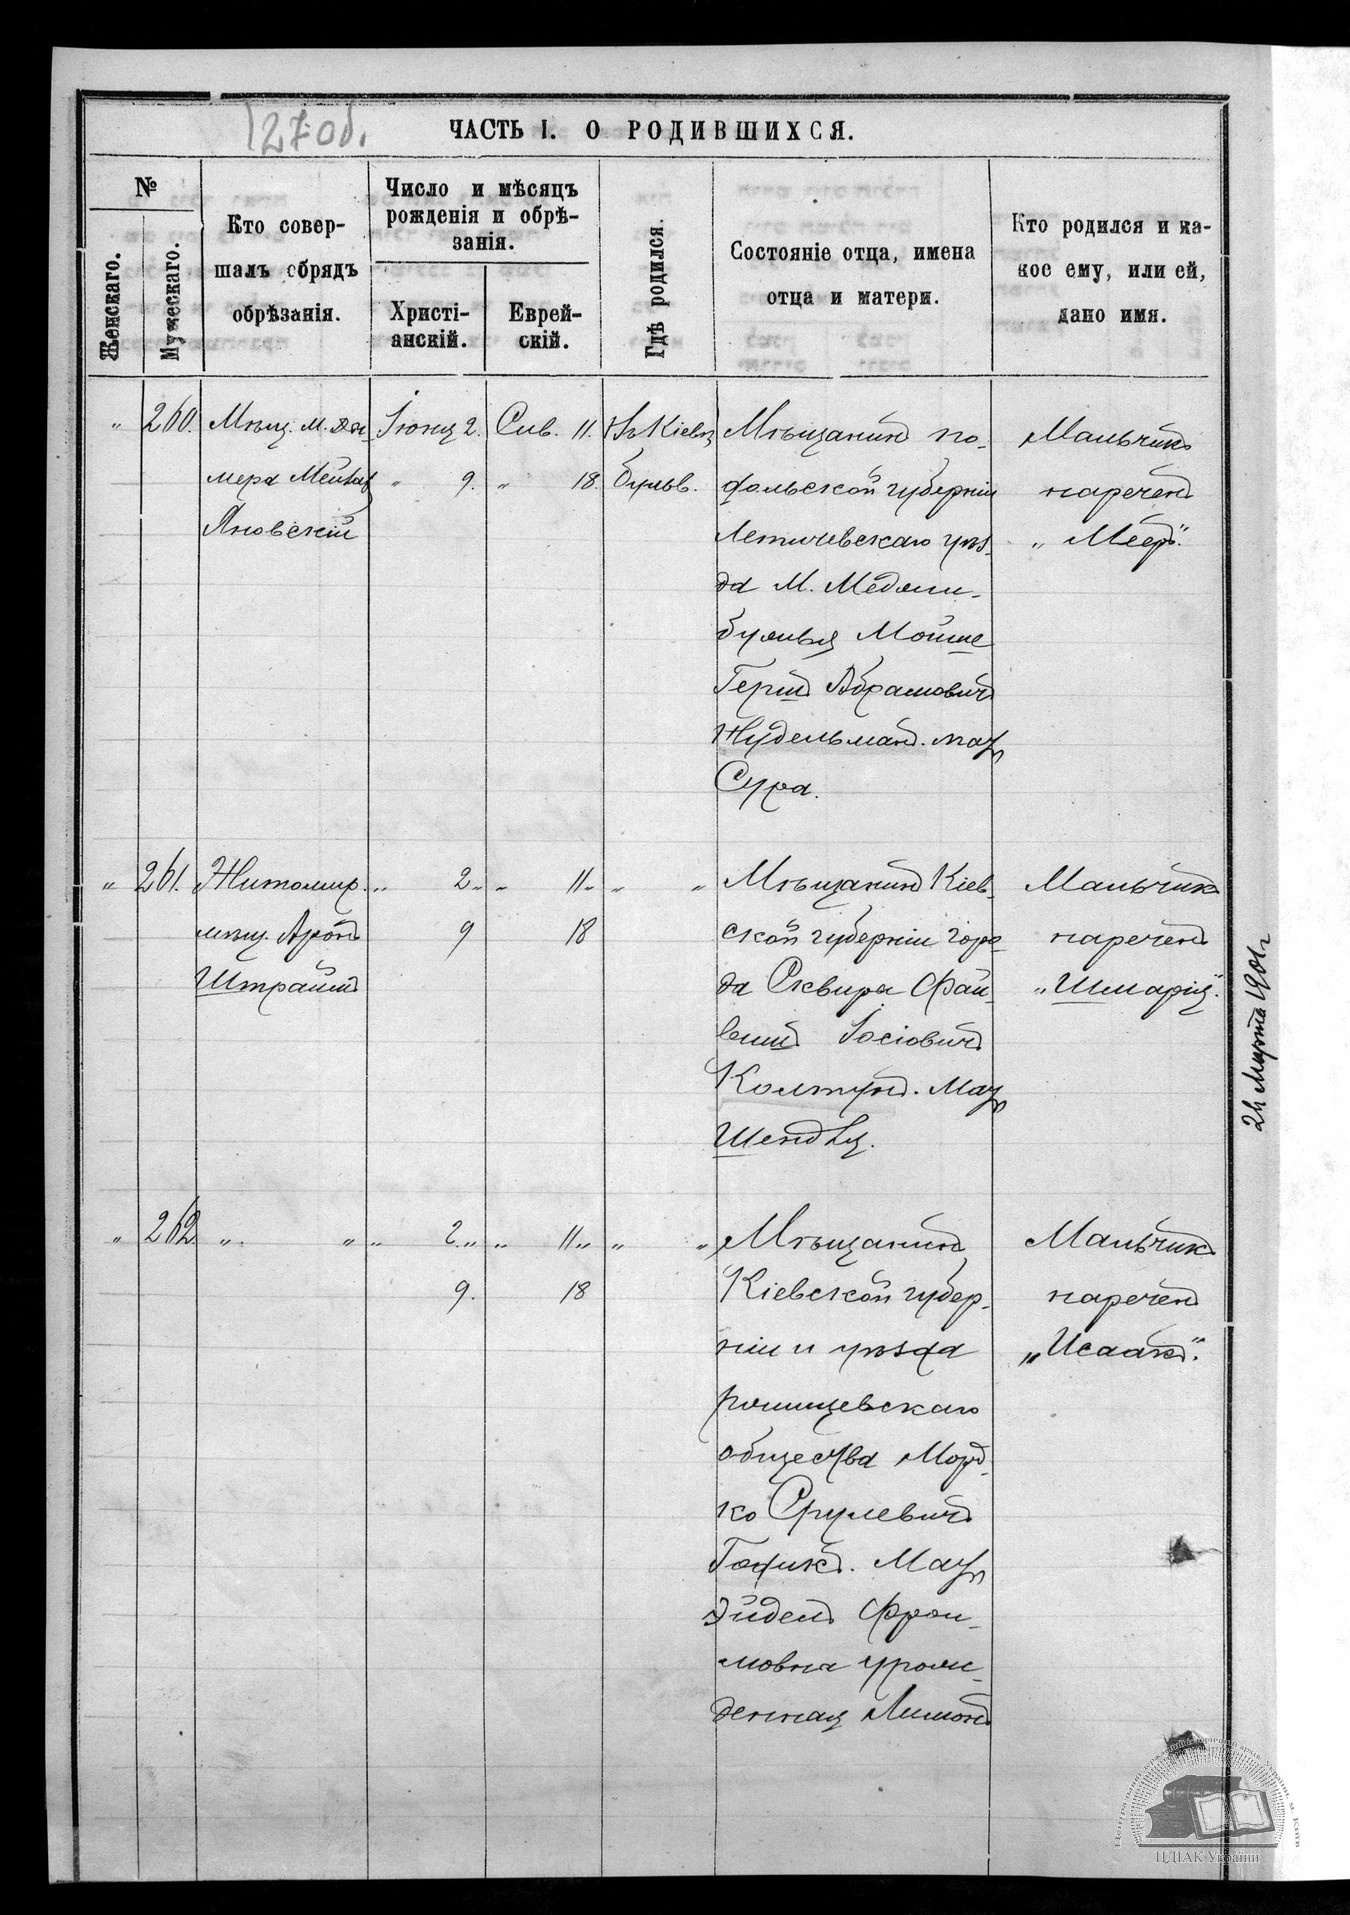 127об.
ЧАСТЬ I. О РОДИВШИХСЯ.
№
Женскаго.
Мужескаго.
Кто совер-
шалъ обрядъ
обрѣзанія.
Число и мѣсяцъ
рожденія и обрѣ-
занія.
Христі-
анскій.
Еврей-
скій.
Гдѣ родился.
Состояніе отца, имена
отца и матери.
Кто родился и ка-
кое ему, или ей,
дано имя.
" 260. Мѣщ. м.
Яновскій
Іюня 2. Сив. 11.
" 9. " 18.
Въ Кіевѣ
бульв.
Мѣщанинъ по-
дольской губерніи
Летичевскаго уѣз-
да М. Меджи-
бужья Мойше
Гершъ Абрамовичъ
Нудельманъ. мать
Сура.
Мальчикъ
нареченъ
"Меер".
" 261. Житомир.
мѣщ. Аронъ
Штраймъ
" 2 " " 11 " " "
9 18
Мѣщанинъ Кіев-
ской губерніи горо-
да Сквира Фай-
вишъ Іосіовичъ
Колтунъ. Мать
Шендля.
Мальчикъ
нареченъ
"Шмарія".
" 262. " " " 2 " " 11 " " "
9. 18
Мѣщанинъ
Кіевской губер-
ніи и уѣзда
общества Морд-
ко Срулевичъ
Мать
Эйдель Фрои-
мовна урож-
денная Лимонъ
Мальчикъ
нареченъ
"Исаакъ".
24 Марта 1901 г.
ЦДІАК України